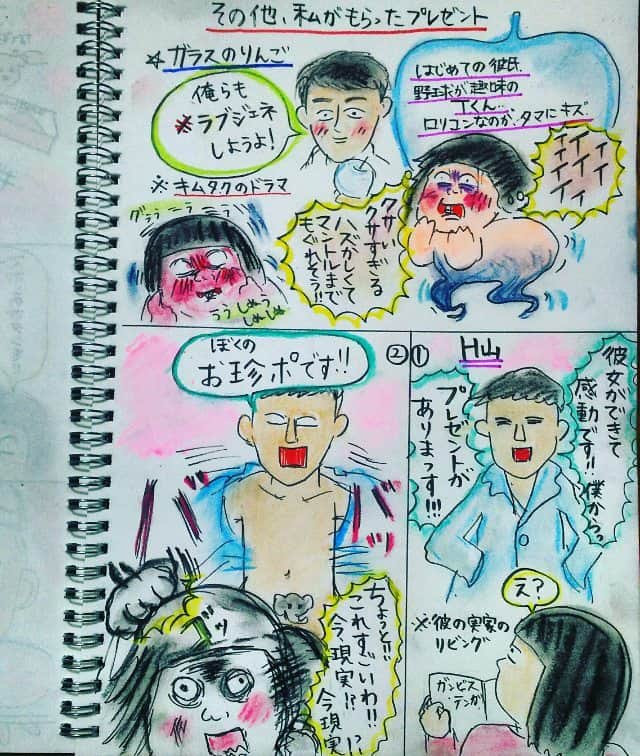 その他、私がもらったプレゼント
☆ガラスのりんご
俺らも
※ラブジェネ
しようよ！
※キムタクのドラマ
はじめての彼氏、
野球が趣味の
Tくん…
ロリコンなのが、タマにキズ
イイイイ
イイイィ
クサい
クサすぎる
ハズかしくて
マントルまで
もぐれそう!!
グララ ニーララ ニラ
ラブしめっ
しめしめ
①
H山
彼女ができて
感動です!! 僕からっ
プレゼントが
ありまっす!!!
え？
※彼の実家の
リビング
ガンピス
・テンガ
②
ぼくの
お珍ポです!!
ガッ
ちょっと!!!
これすごいわ!!
今、現実!?
今現実!?